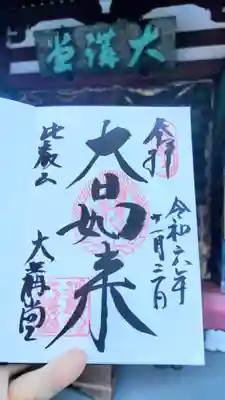 大講堂
奉拝
令和六年
十一月二日
大日如来
比叡山
大講堂